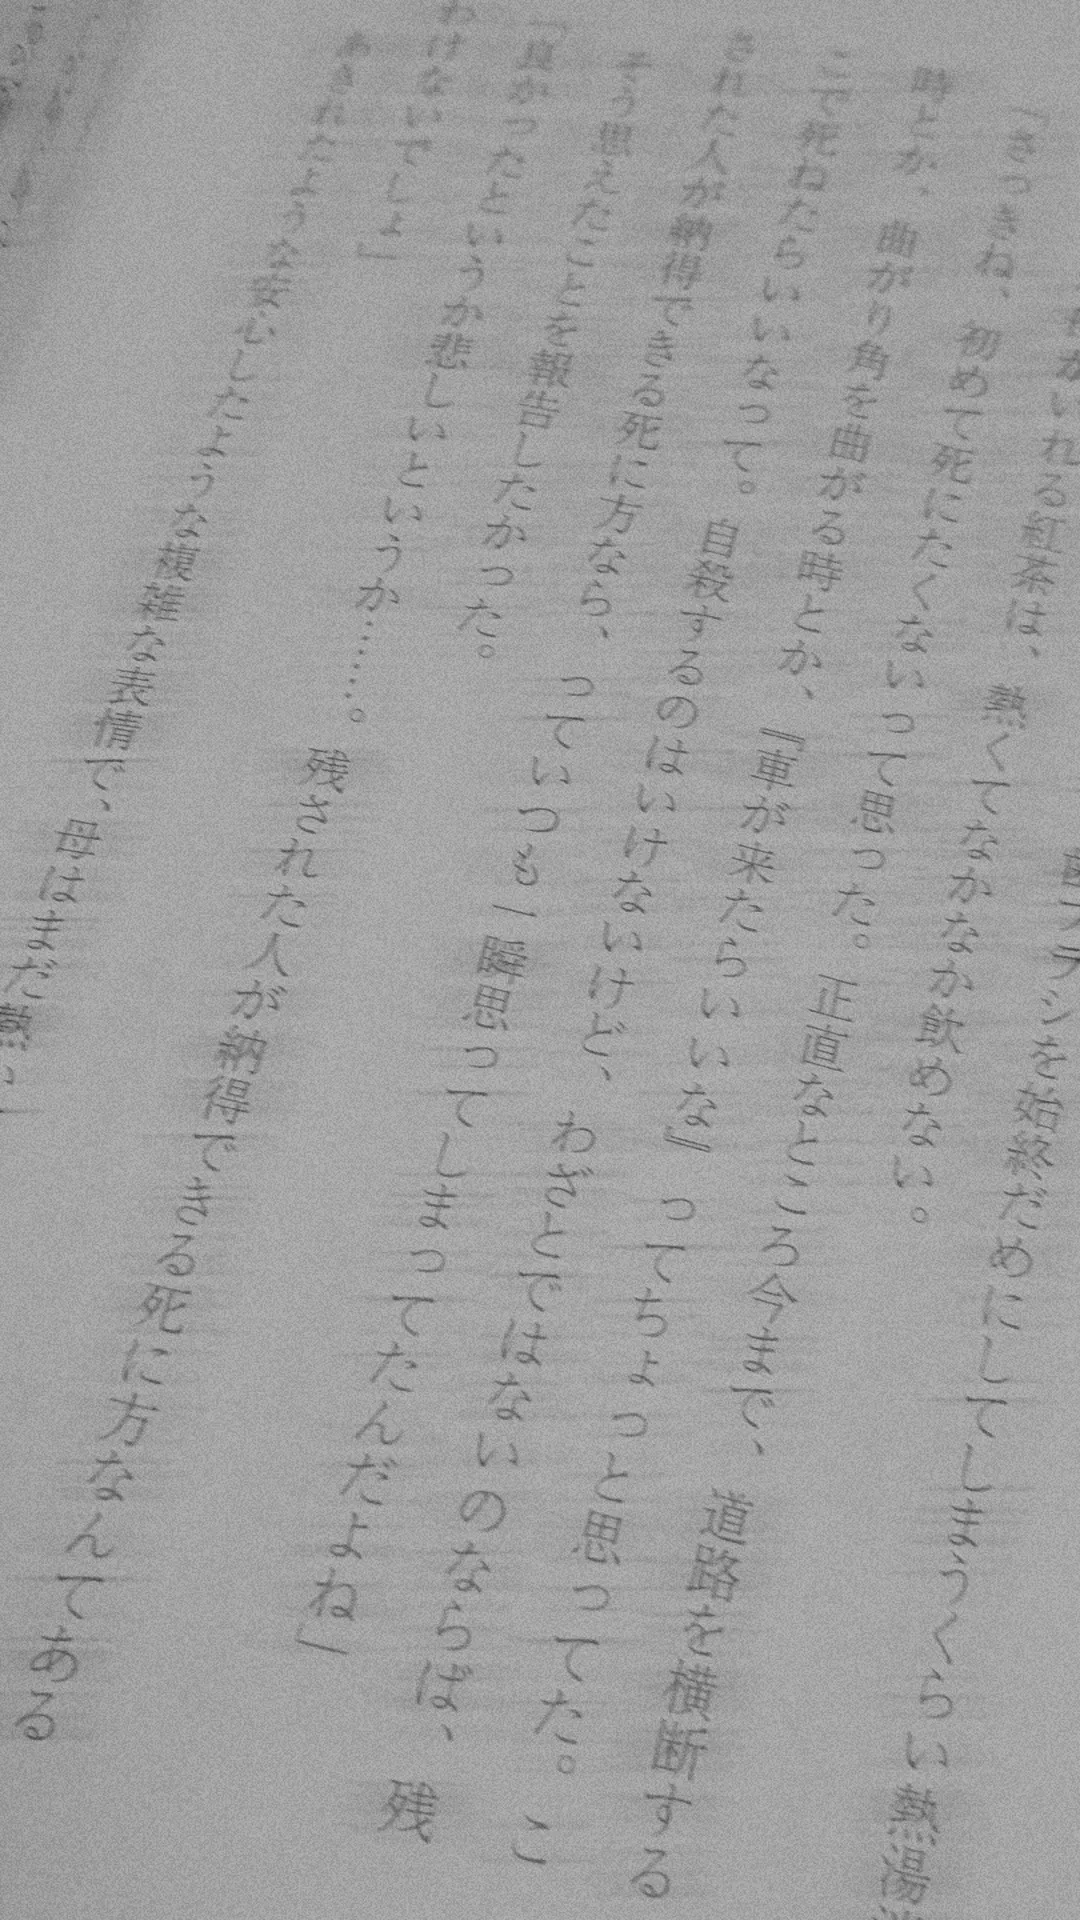 ブラシを始終だめにしてしまうくらい熱湯
がいれる紅茶は、熱くてなかなか飲めない。
「さっきね、初めて死にたくないって思った。正直なところ今まで、道路を横断する
時とか、曲がり角を曲がる時とか、『車が来たらいいな』ってちょっと思ってた。こ
こで死ねたらいいなって。自殺するのはいけないけど、わざとではないのならば、残
された人が納得できる死に方なら、っていつも一瞬思ってしまってたんだよね」
そう思えたことを報告したかった。
「良かったというか悲しいというか……。残された人が納得できる死に方なんてある
わけないでしょ」
あきれたような安心したような複雑な表情で、母はまだ熱い